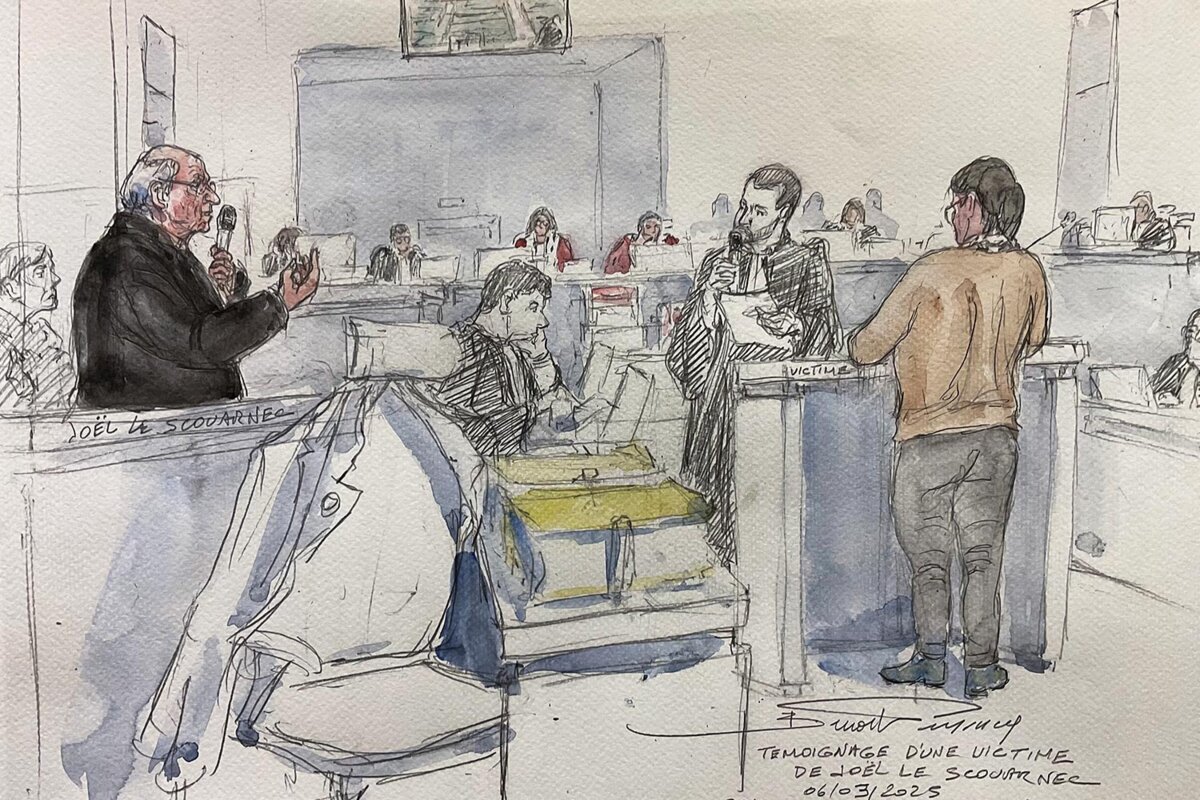 JOËL LE SCOUARNEC
VICTIME
Benoit
TEMOIGNAGE D'UNE VICTIME
DE JOËL LE SCOUARNEC
06/03/2025